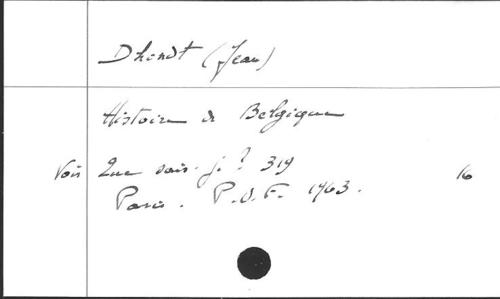 Dhondt (Jean)
Histoire de Belgique
Voir Que sais-je ? 319 16
Paris. P.U.F. 1963.